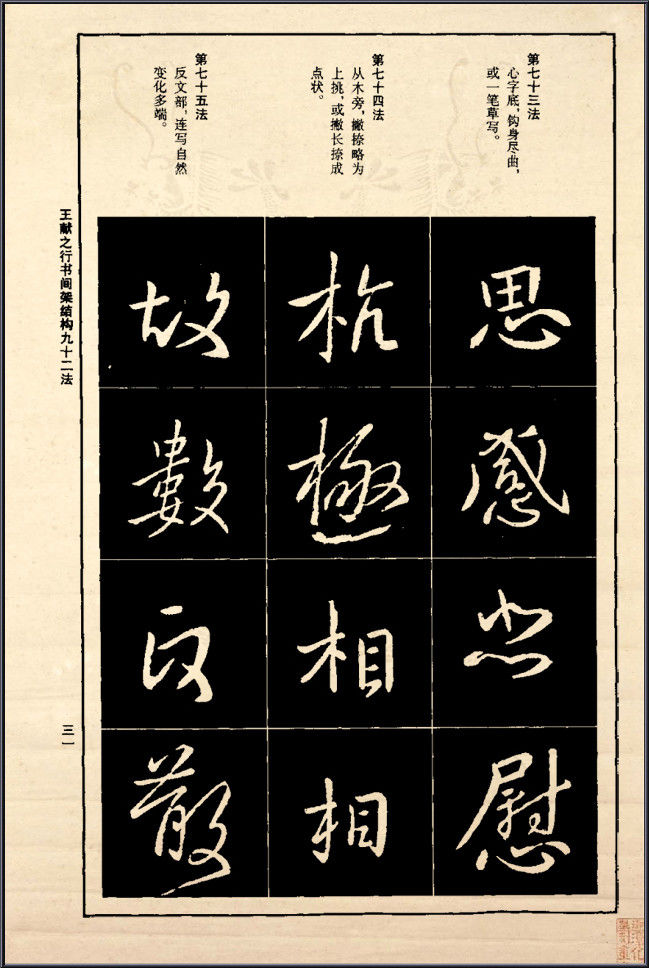 第七十三法
心字底，钩身尽曲，
或一笔草写。
第七十四法
从木旁，撇捺略为
上挑，或撇长捺成
点状。
第七十五法
反文部，连写自然
变化多端。
思
感
慰
杭
極
相
相
故
數
散
王献之行书间架结构九十二法
三一